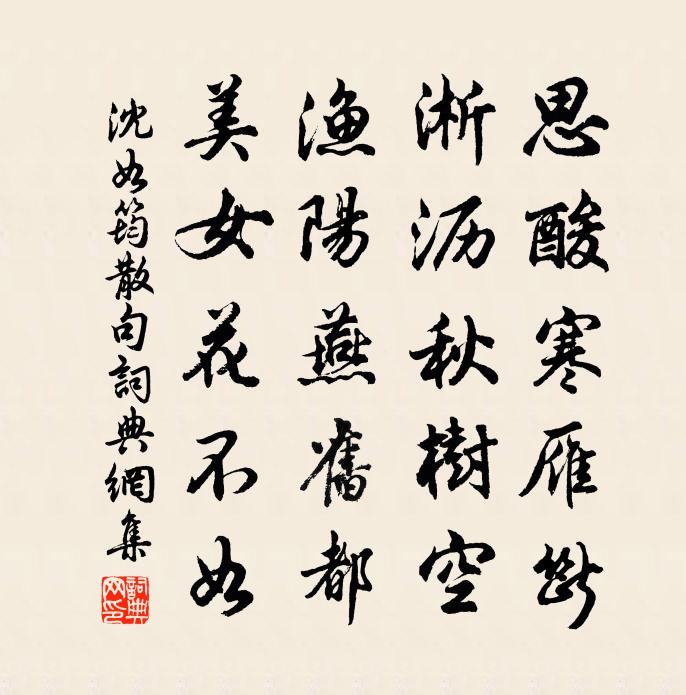 思酸寒雁斷
淅沥秋樹空
漁陽燕舊都
美女花不如
沈如筠散句詞典網集
詞典網印